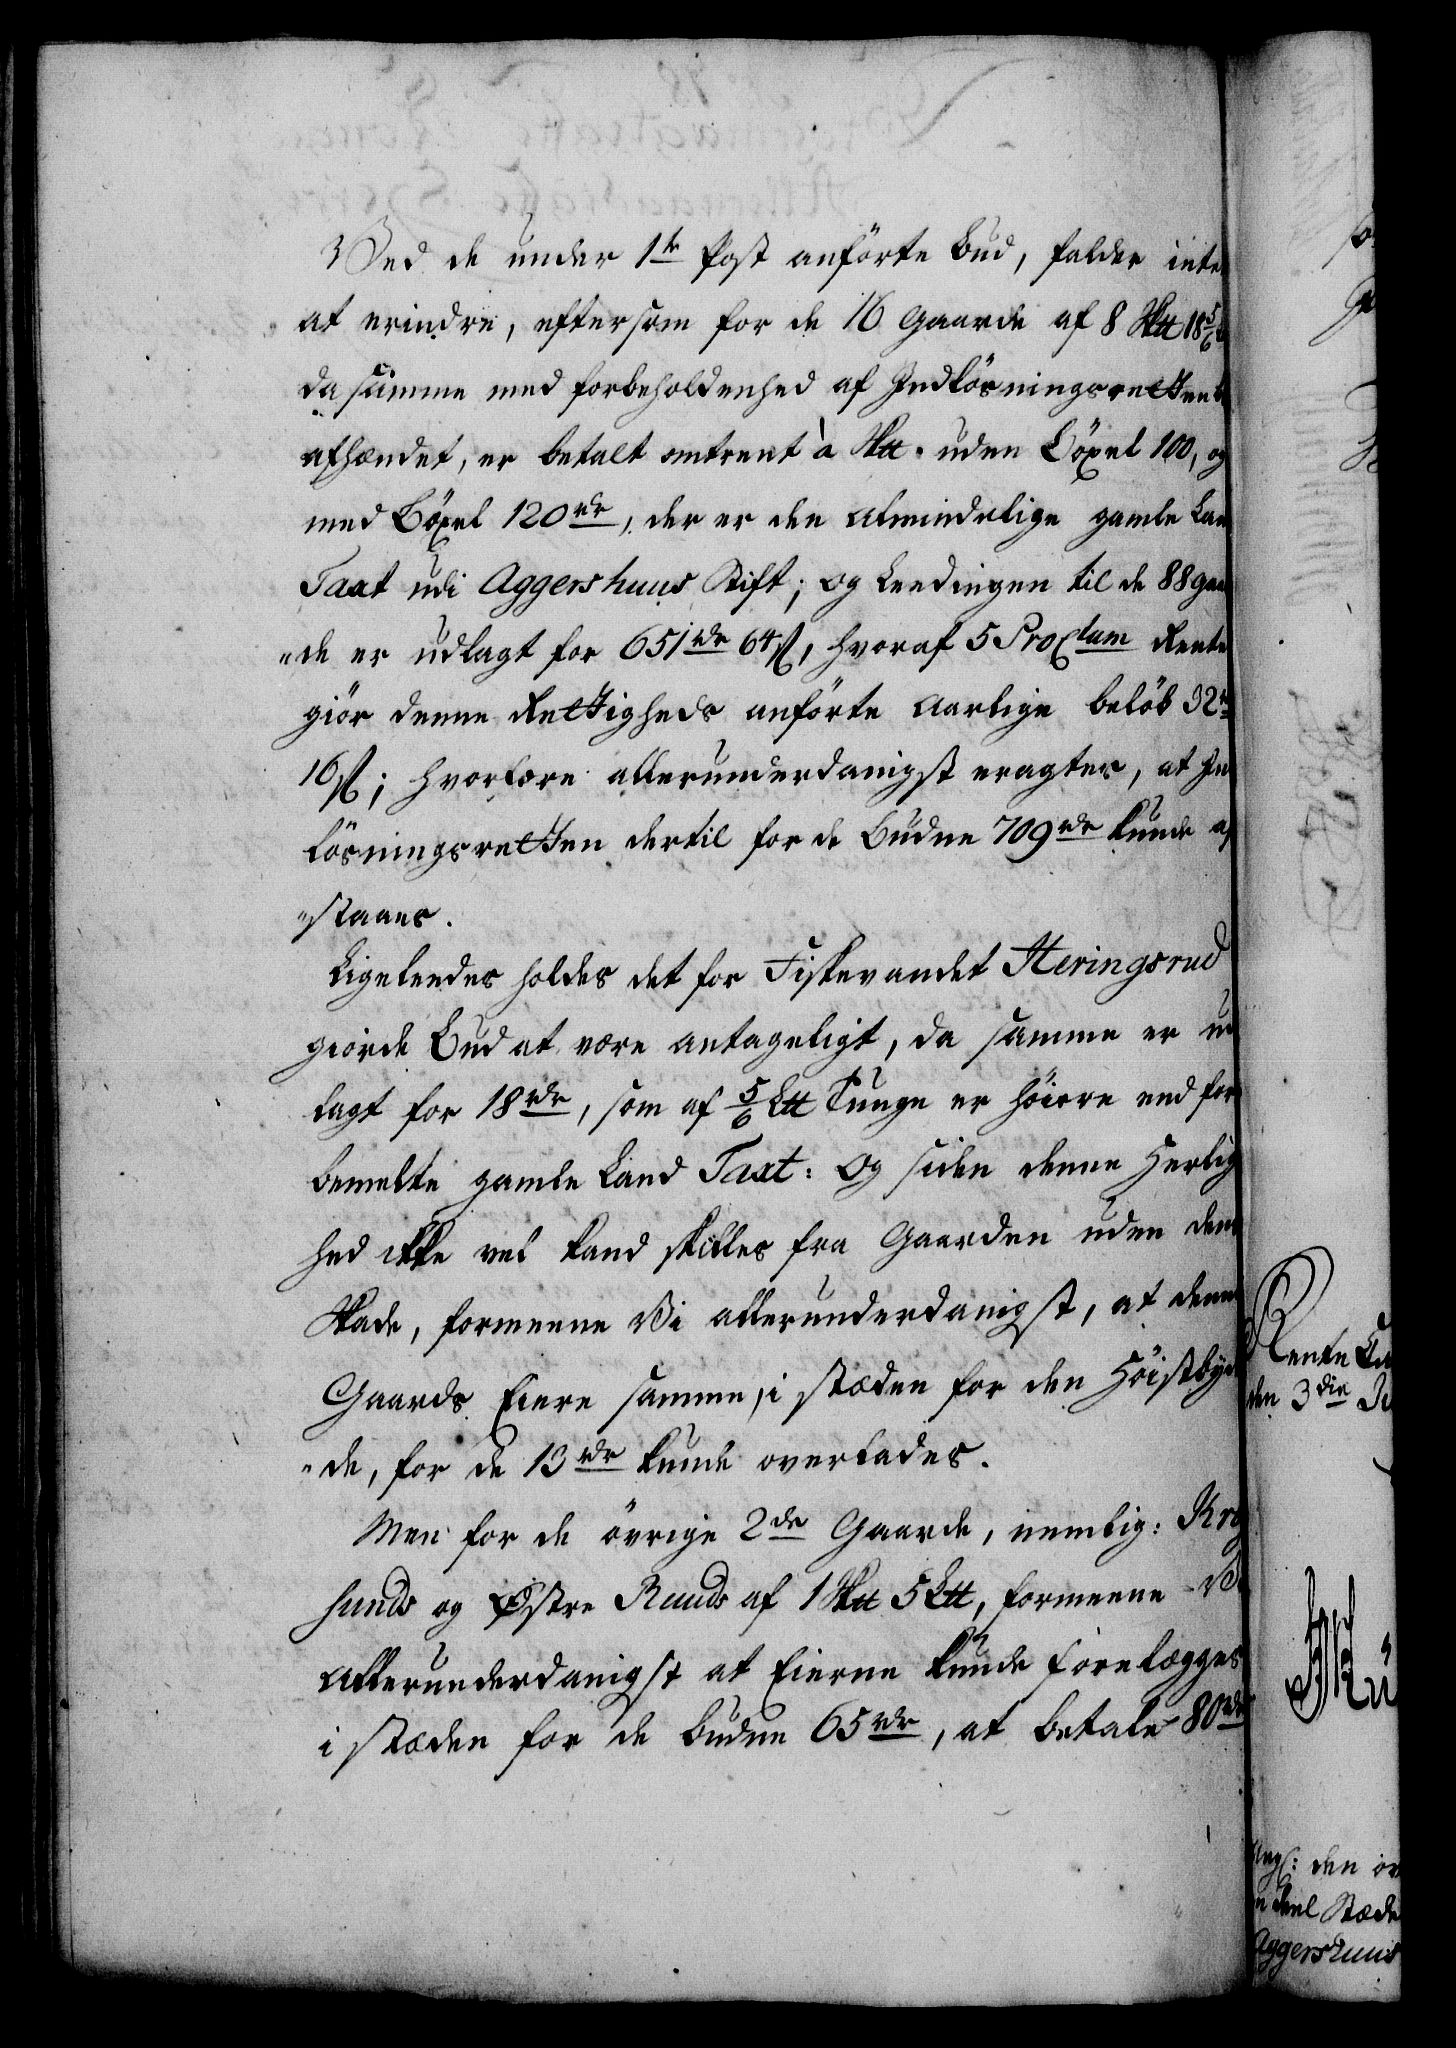 Ved de under 1te Post anførte Bud, falder intet
at erindre, eftersom for de 16 Gaarde af 8 Skt 18 5/6
da samme med forbeholdenhed af Indløsningsretten
afhændet, er betalt omtrent à Skt. uden Böxel 100, og
med Böxel 120 rdr, der er den almindelige gamle Land
Taxt udi Aggershuus Stift; og Leedingen til de 88 gaar
"de er udlagt for 651 rdr 64 ß, hvoraf 5 ProCtum Rente
giör denne Rettigheds anførte Aarlige beløb 32 rdr
16 ß; hvorfore allerunderdanigst eragtes, at Ind
løsningsretten dertil for de Budne 709 rdr kunde af
"staaes.
Ligeledes holdes det for Fiskevandet Heringsrud
giorde Bud at være antageligt, da samme er ud
lagt for 18 rdr, som af 5/6 Ltt Tunge er høiere end for
bemelte gamle Land Taxt: Og siden denne Herlig
hed ikke vel kand skilles fra Gaarden uden dens
Skade, formeene Vi allerunderdanigst, at denne
Gaards Eiere samme, i stæden for den Høistbyden
"de, for de 13 rdr kunde overlades.
Men for de øvrige 2de Gaarde, nemlig: Krog
hunds og Østre Ruuds af 1 Skt 5 Ltt, formeene Vi
allerunderdanigst at Eierne kunde forelægges
i stæden for de budne 65 rdr, at betale 80 rdr
Rente Ca
den 3die Ju
den øv
deel Stæde
Aggershuus